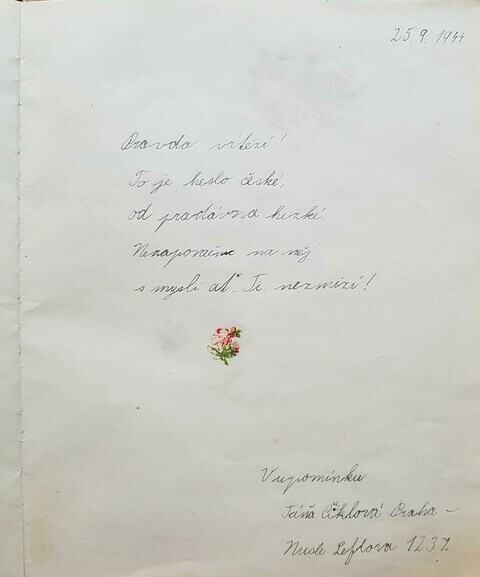 25.9.1944.
Pravda vítězí!
To je heslo české,
od pradávna hezké.
Nezapomeň na něj
s mysli ať Ti nezmizí!
V upomínku
Táňa Praha –
Nusle 1237.